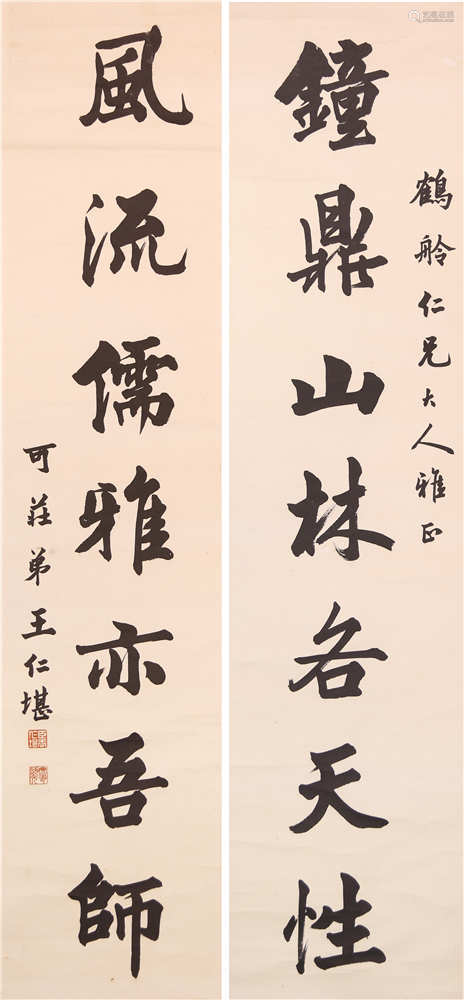 鐘鼎山林各天性
鶴舲仁兄大人雅正
風流儒雅亦吾師
可莊弟王仁堪